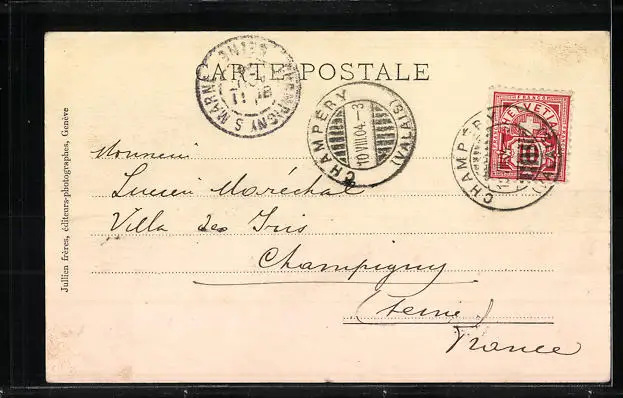 CARTE POSTALE
CHAMPIGNY S MARNE
SEINE
CHAMPÉRY
10 VIII.04.-3
(VALAIS)
FRANCO
HELVETIA
10
CHAMPÉRY
(VALAIS)
Monsieur
Lucien Maréchal
Villa des Iris
Champigny
(Seine)
France
Jullien frères, éditeurs-photographes, Genève